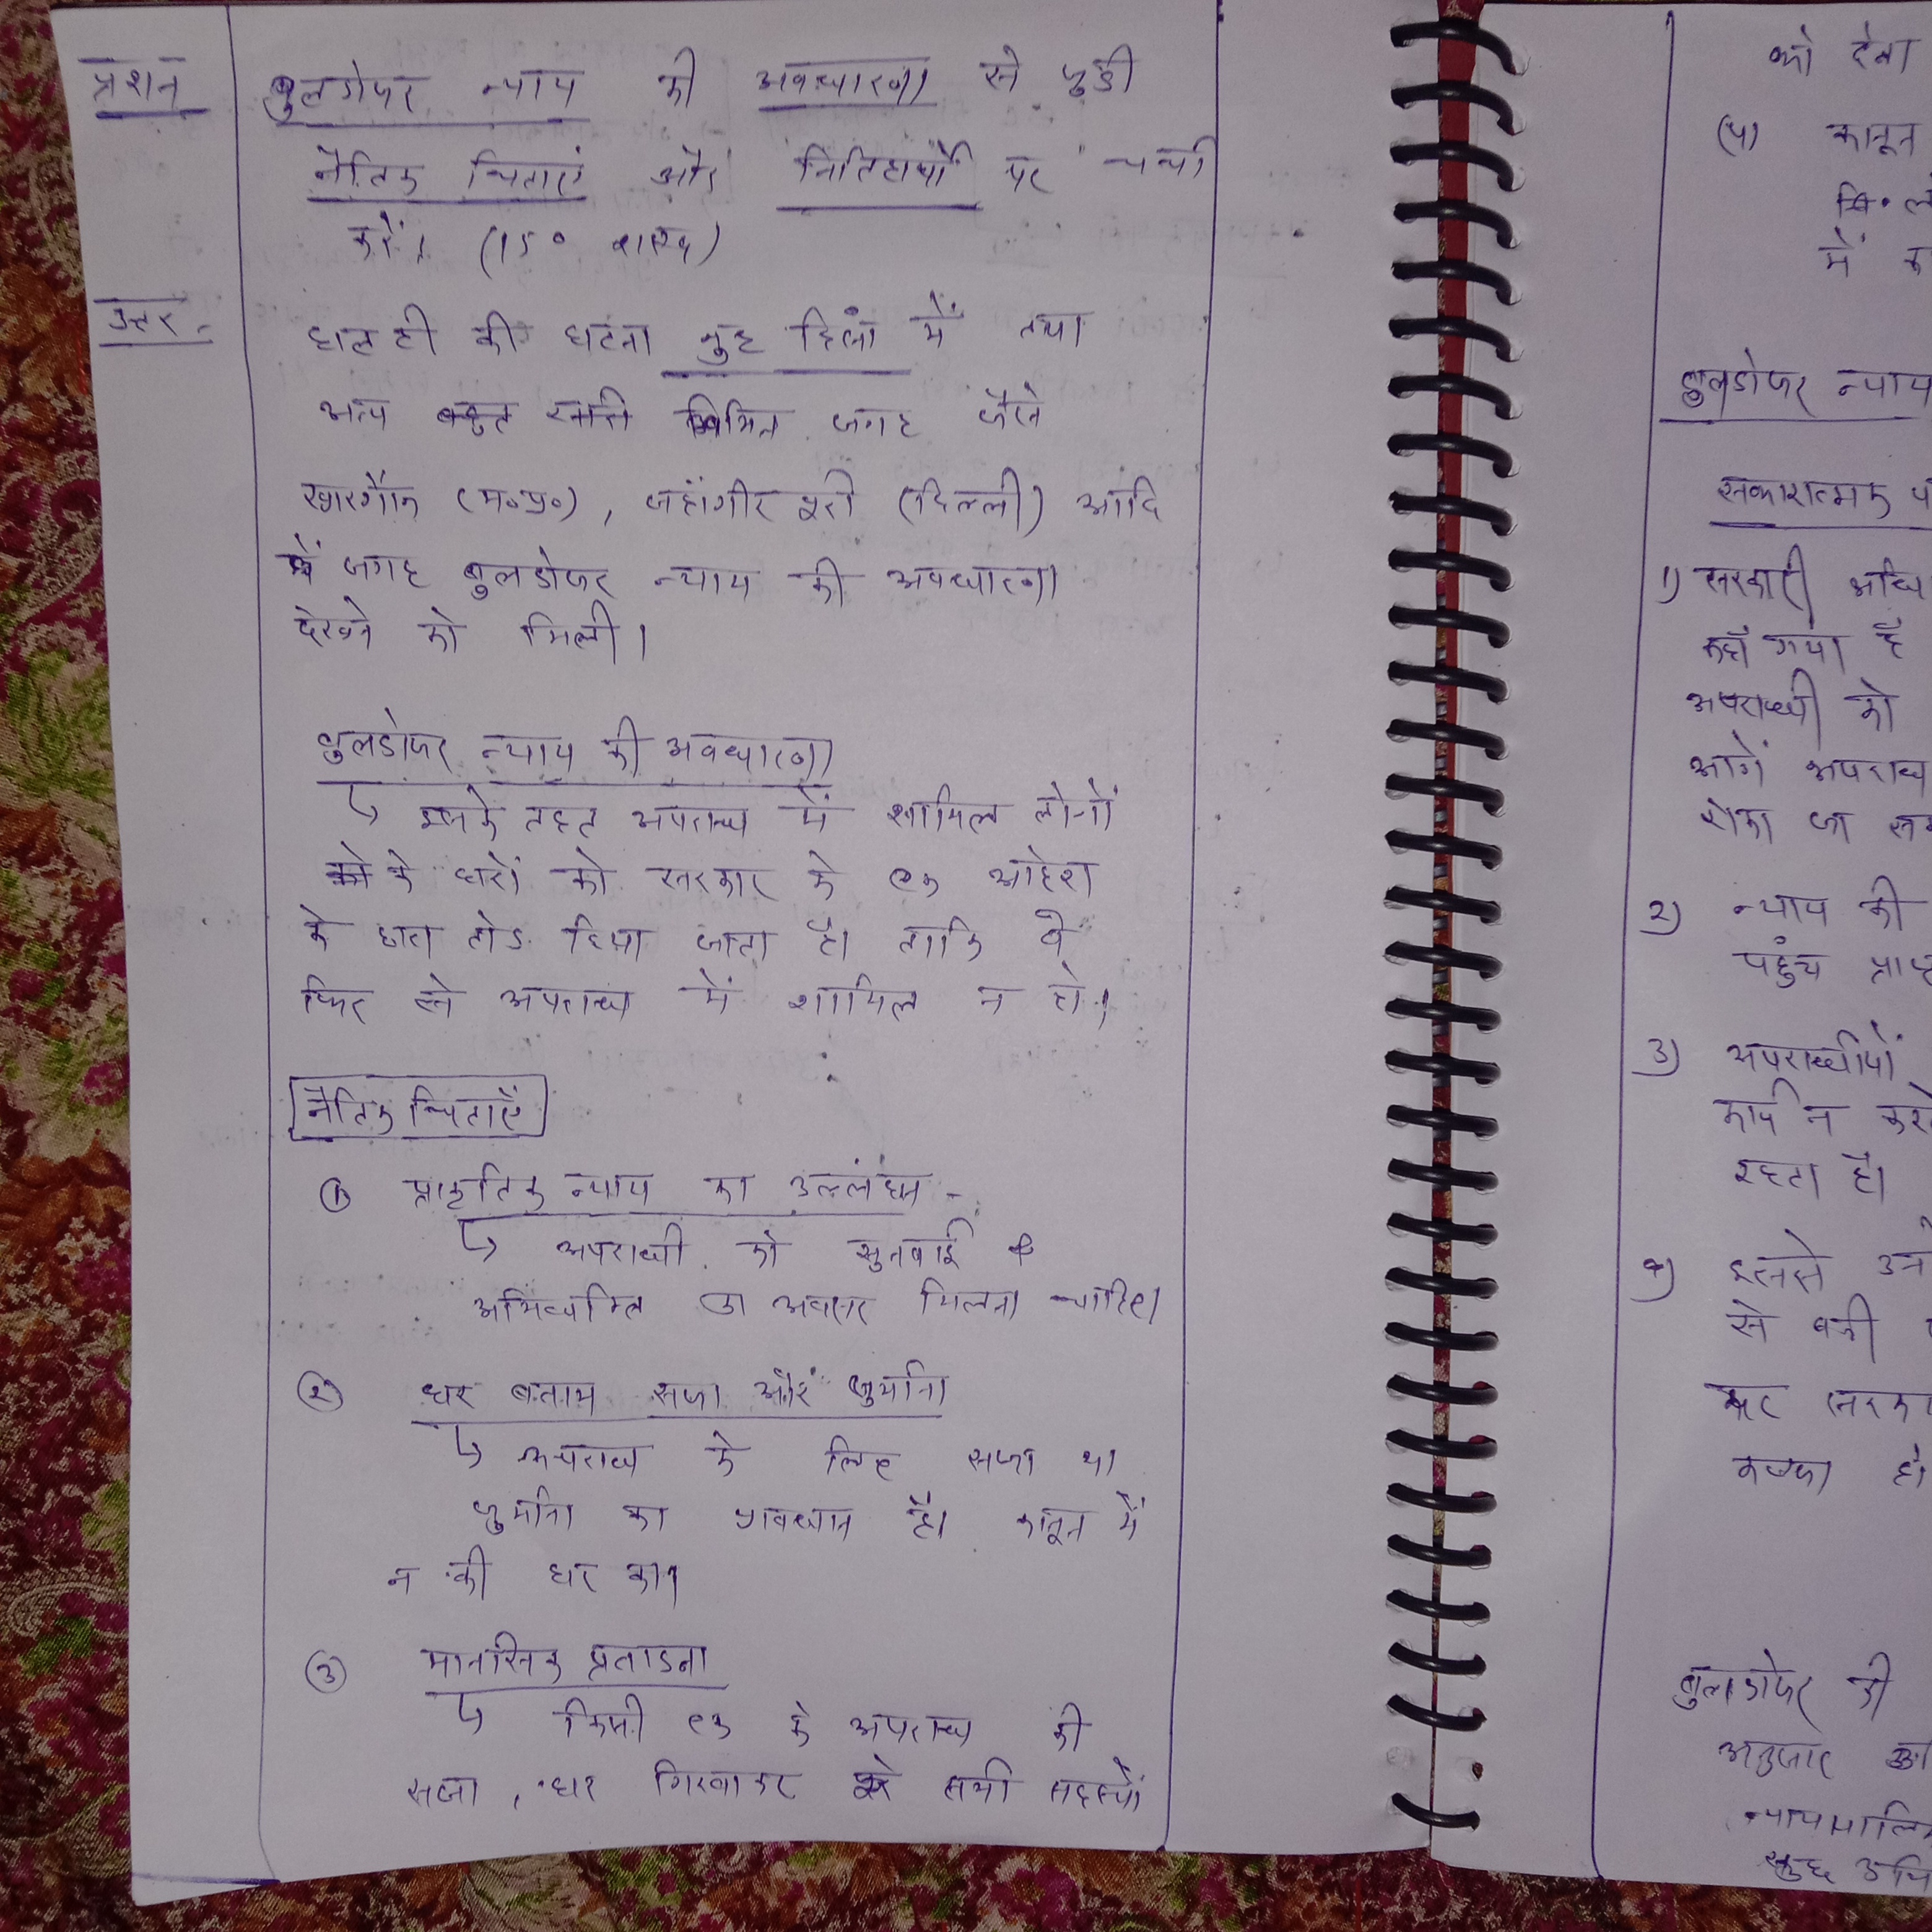 प्रशन
बुलडोजर न्याय की अवधारणा से जुडी
नैतिक चिंताएं और निहितार्थों पर चर्चा
करें। (150 शब्द)
उत्तर -
हाल ही की घटना नुह जिला में तथा
अन्य बहुत सारी विभिन्न जगह जैसे
खारगौन (म०प्र०), जहांगीर पुरी (दिल्ली) आदि
जगह बुलडोजर न्याय की अवधारणा
देखने को मिली।
बुलडोजर न्याय की अवधारणा
↳ इसके तहत अपराध में शामिल लोगों
के घरों को सरकार के एक आदेश
के द्वारा तोड दिया जाता है। ताकि वे
फिर से अपराध में शामिल न हो।
नैतिक चिंताएँ
① प्राकृतिक न्याय का उल्लंघन -
↳ अपराधी को सुनवाई व
अभिव्यक्ति का अवसर मिलना चाहिए।
② घर बनाम सजा और जुर्माना
↳ अपराध के लिए सजा या
जुर्माना का प्रावधान है। कानून में
न की घर का।
③ मानसिक प्रताडना
↳ किसी एक के अपराध की
सजा, घर गिरवाकर सभी सदस्यों
को देना
कानून
में
बुलडोजर न्याय
सकारात्मक
1) सरकारी
कहाँ गया है
अपराधी को
आगे अपराध
रोका जा
2) न्याय की
पहुंच
3) अपराधीयों
कार्य न
रहता है।
4) इससे
से
सरका
कब्जा हो
बुलडोजर की
अनुसार